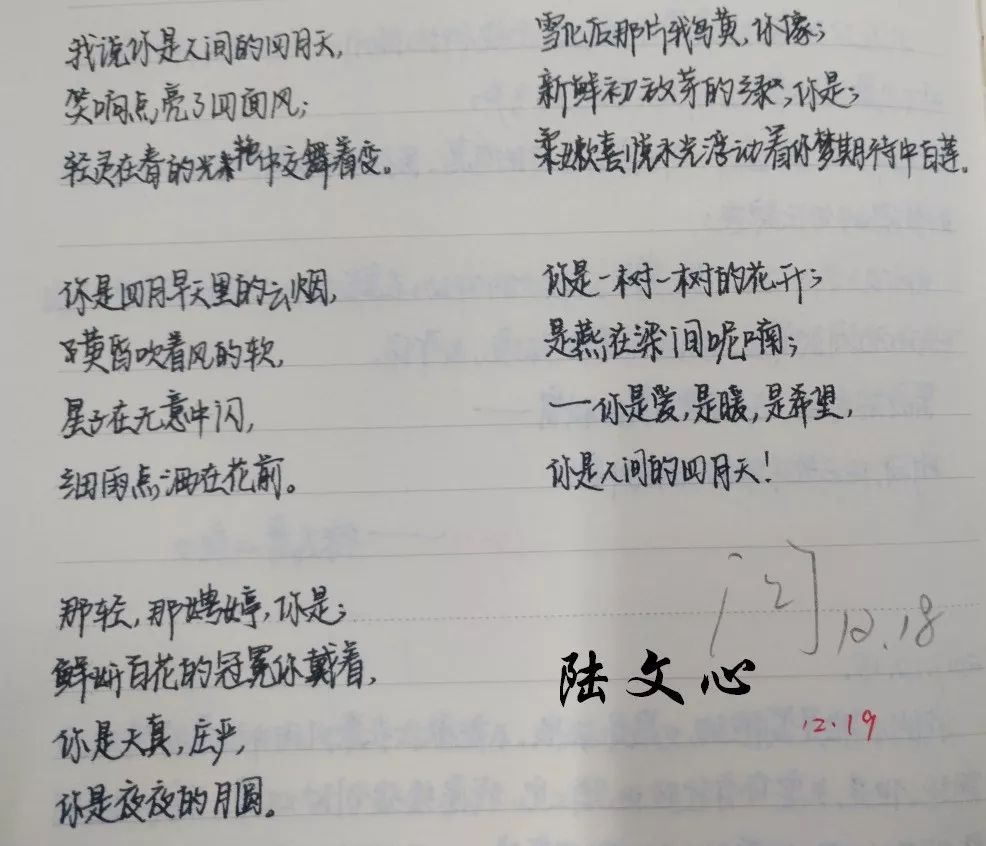 我说你是人间的四月天,
笑响点亮了四面风;
轻灵在春的光艳中交舞着变。
你是四月早天里的云烟,
黄昏吹着风的软,
星子在无意中闪,
细雨点洒在花前。
那轻,那娉婷,你是;
鲜妍百花的冠冕你戴着,
你是天真,庄严,
你是夜夜的月圆。
雪化后那片鹅黄,你像;
新鲜初放芽的绿,你是;
柔嫩喜悦水光浮动着你梦期待中白莲。
你是一树一树的花开;
是燕在梁间呢喃;
——你是爱,是暖,是希望,
你是人间的四月天!
12.18
陆文心
12.19